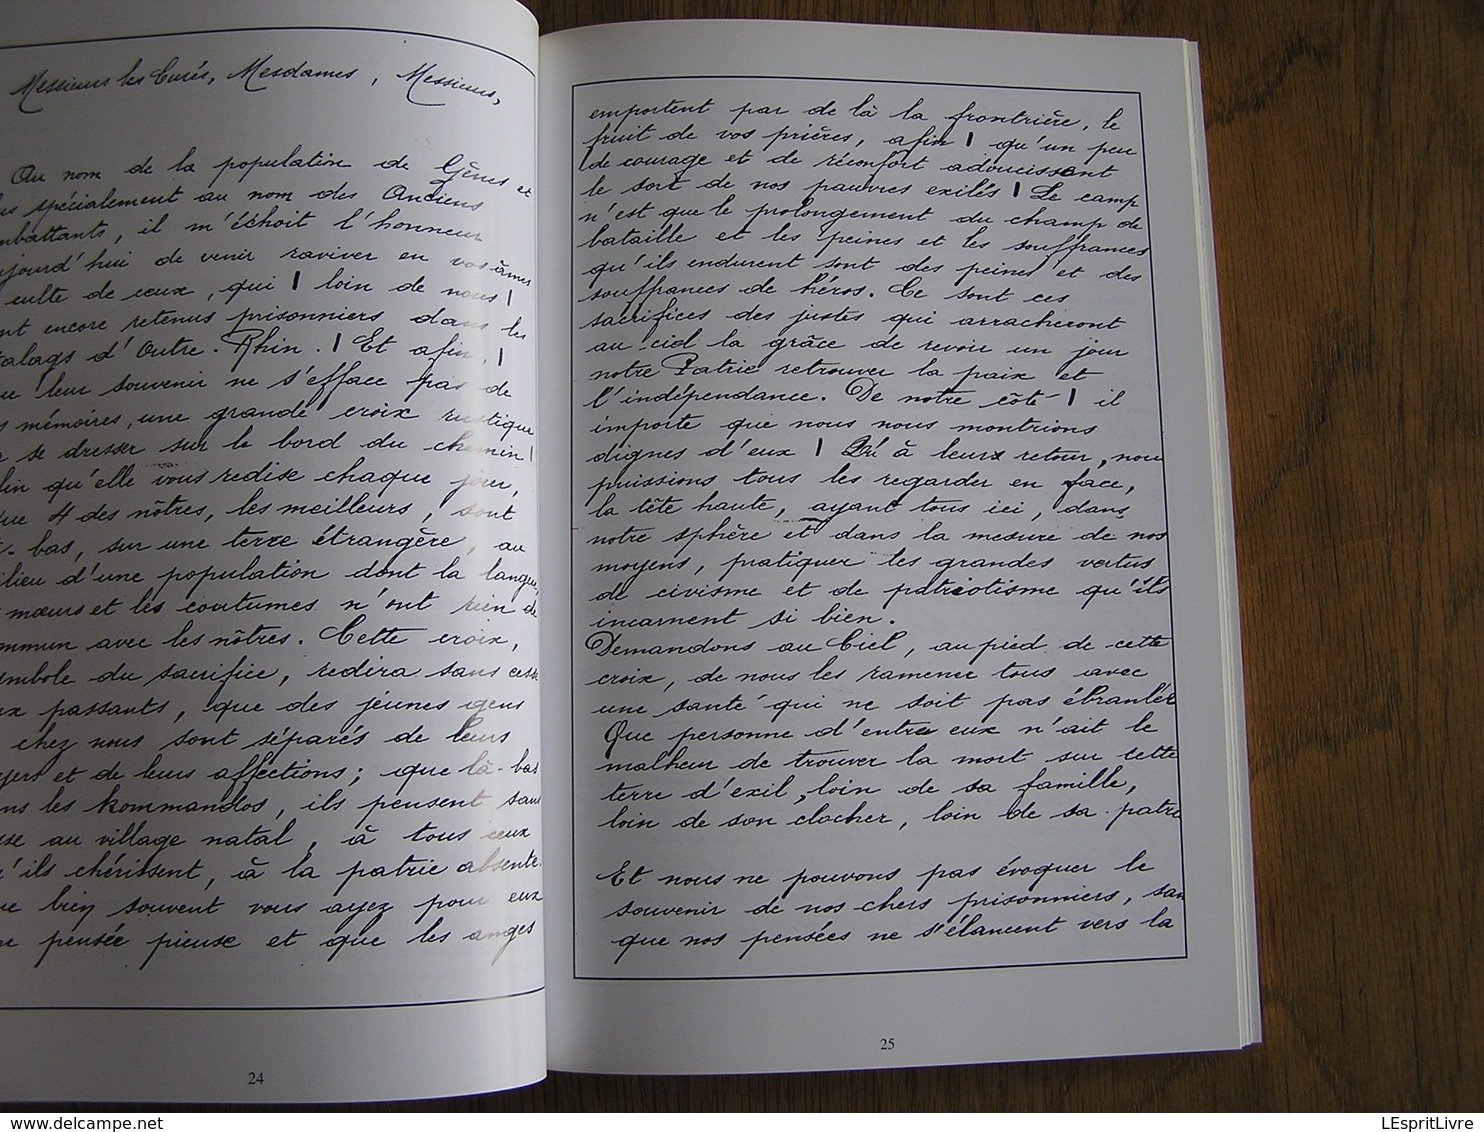 Messieurs les Curés, Mesdames, Messieurs,
Au nom de la population de Gênes et
spécialement au nom des Anciens
mbattants, il m'échoit l'honneur
ujourd'hui de venir raviver en vos âmes
culte de ceux, qui | loin de nous |
nt encore retenus prisonniers dans les
talags d'Outre-Rhin. | Et afin, |
ue leur souvenir ne s'efface pas de
s mémoires, une grande croix rustique
se dresser sur le bord du chemin |
fin qu'elle vous redise chaque jour,
que 4 des nôtres, les meilleurs, sont
-bas, sur une terre étrangère, au
ilieu d'une population dont la langue,
mœurs et les coutumes n'ont rien de
mmun avec les nôtres. Cette croix,
mbole du sacrifice, redira sans cesse
ux passants, que des jeunes gens
chez nous sont séparés de leurs
yers et de leurs affections; que là-bas
ans les kommandos, ils pensent sans
sse au village natal, à tous ceux
u'ils chérissent, à la patrie absente.
ue bien souvent vous ayez pour eux
ne pensée pieuse et que les anges
24
emportent par de là la frontrière, le
fruit de vos prières, afin | qu'un peu
de courage et de réconfort adoucissent
le sort de nos pauvres exilés | Le camp
n'est que le prolongement du champ de
bataille et les peines et les souffrances
qu'ils endurent sont des peines et des
souffrances de héros. Ce sont ces
sacrifices des justes qui arracheront
au ciel la grâce de revoir un jour
notre Patrie retrouver la paix et
l'indépendance. De notre côté | il
importe que nous nous montrions
dignes d'eux | Qu'à leurs retour, nous
puissions tous les regarder en face,
la tête haute, ayant tous ici, dans
notre sphère et dans la mesure de nos
moyens, pratiquer les grandes vertus
de civisme et de patriotisme qu'ils
incarnent si bien.
Demandons au Ciel, au pied de cette
croix, de nous les ramener tous avec
une santé qui ne soit pas ébranlée
Que personne d'entre eux n'ait le
malheur de trouver la mort sur cette
terre d'exil, loin de sa famille,
loin de son clocher, loin de sa patrie
Et nous ne pouvons pas évoquer le
souvenir de nos chers prisonniers, san
que nos pensées ne s'élancent vers la
25
LEspritLivre